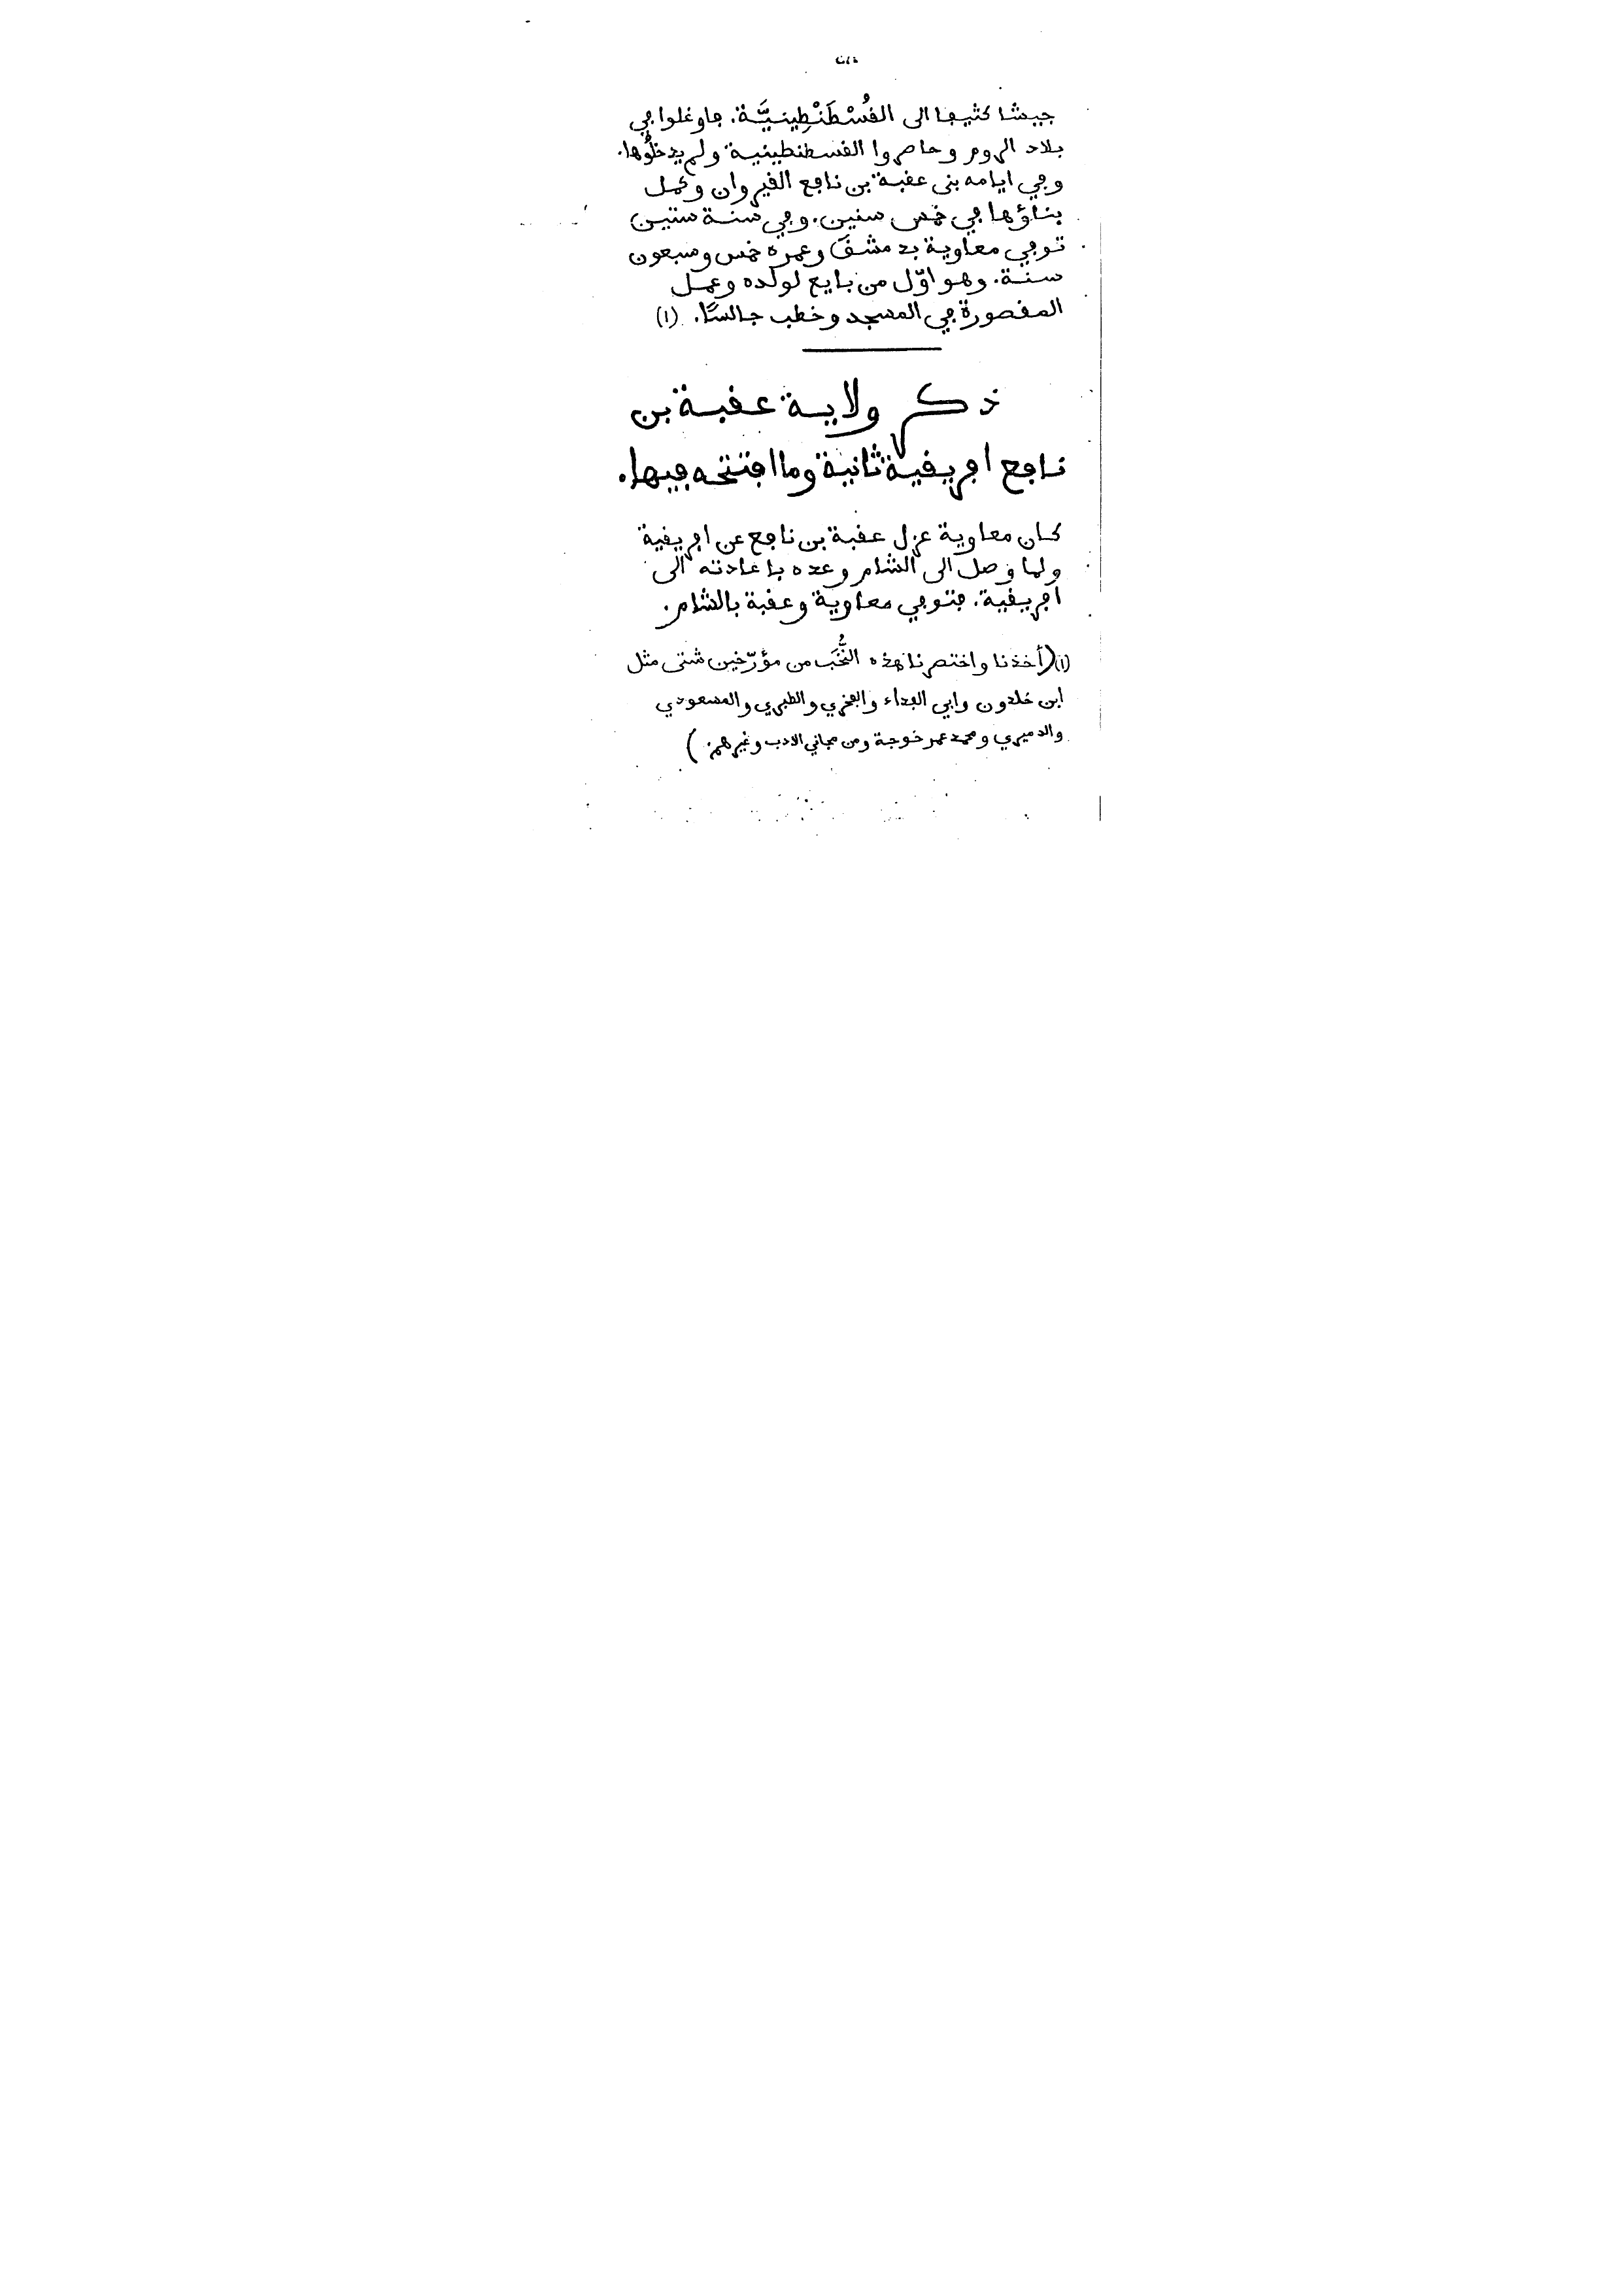 جيشا كثيفا الى القُسْطَنْطِينِيَّة. فاوغلوا في
بلاد الروم وحاصروا القسطنطينية ولم يدخلُوها.
وفي ايامه بنى عقبة بن نافع القيروان وكمل
بناؤها في خمس سنين. وفي سنة ستين
توفي معاوية بدمشقَ وعمره خمس وسبعون
سنة. وهو اوّل من بايع لولده وعمل
المقصورة في المسجد وخطب جالسًا. (١)
ذكر ولاية عقبة بن
نافع افريقية ثانية وما افتتحه فيها.
كان معاوية عزل عقبة بن نافع عن افريقية
ولما وصل الى الشام وعده باعادته الى
افريقية. فتوفي معاوية وعقبة بالشام.
(١) (أخذنا واختصرنا هذه النُّخَب من مؤرّخين شتى مثل
ابن خلدون وابي الفداء والفخري والطبري والمسعودي
والدميري ومحمد عمر خوجة ومن مجاني الادب وغيرهم.)